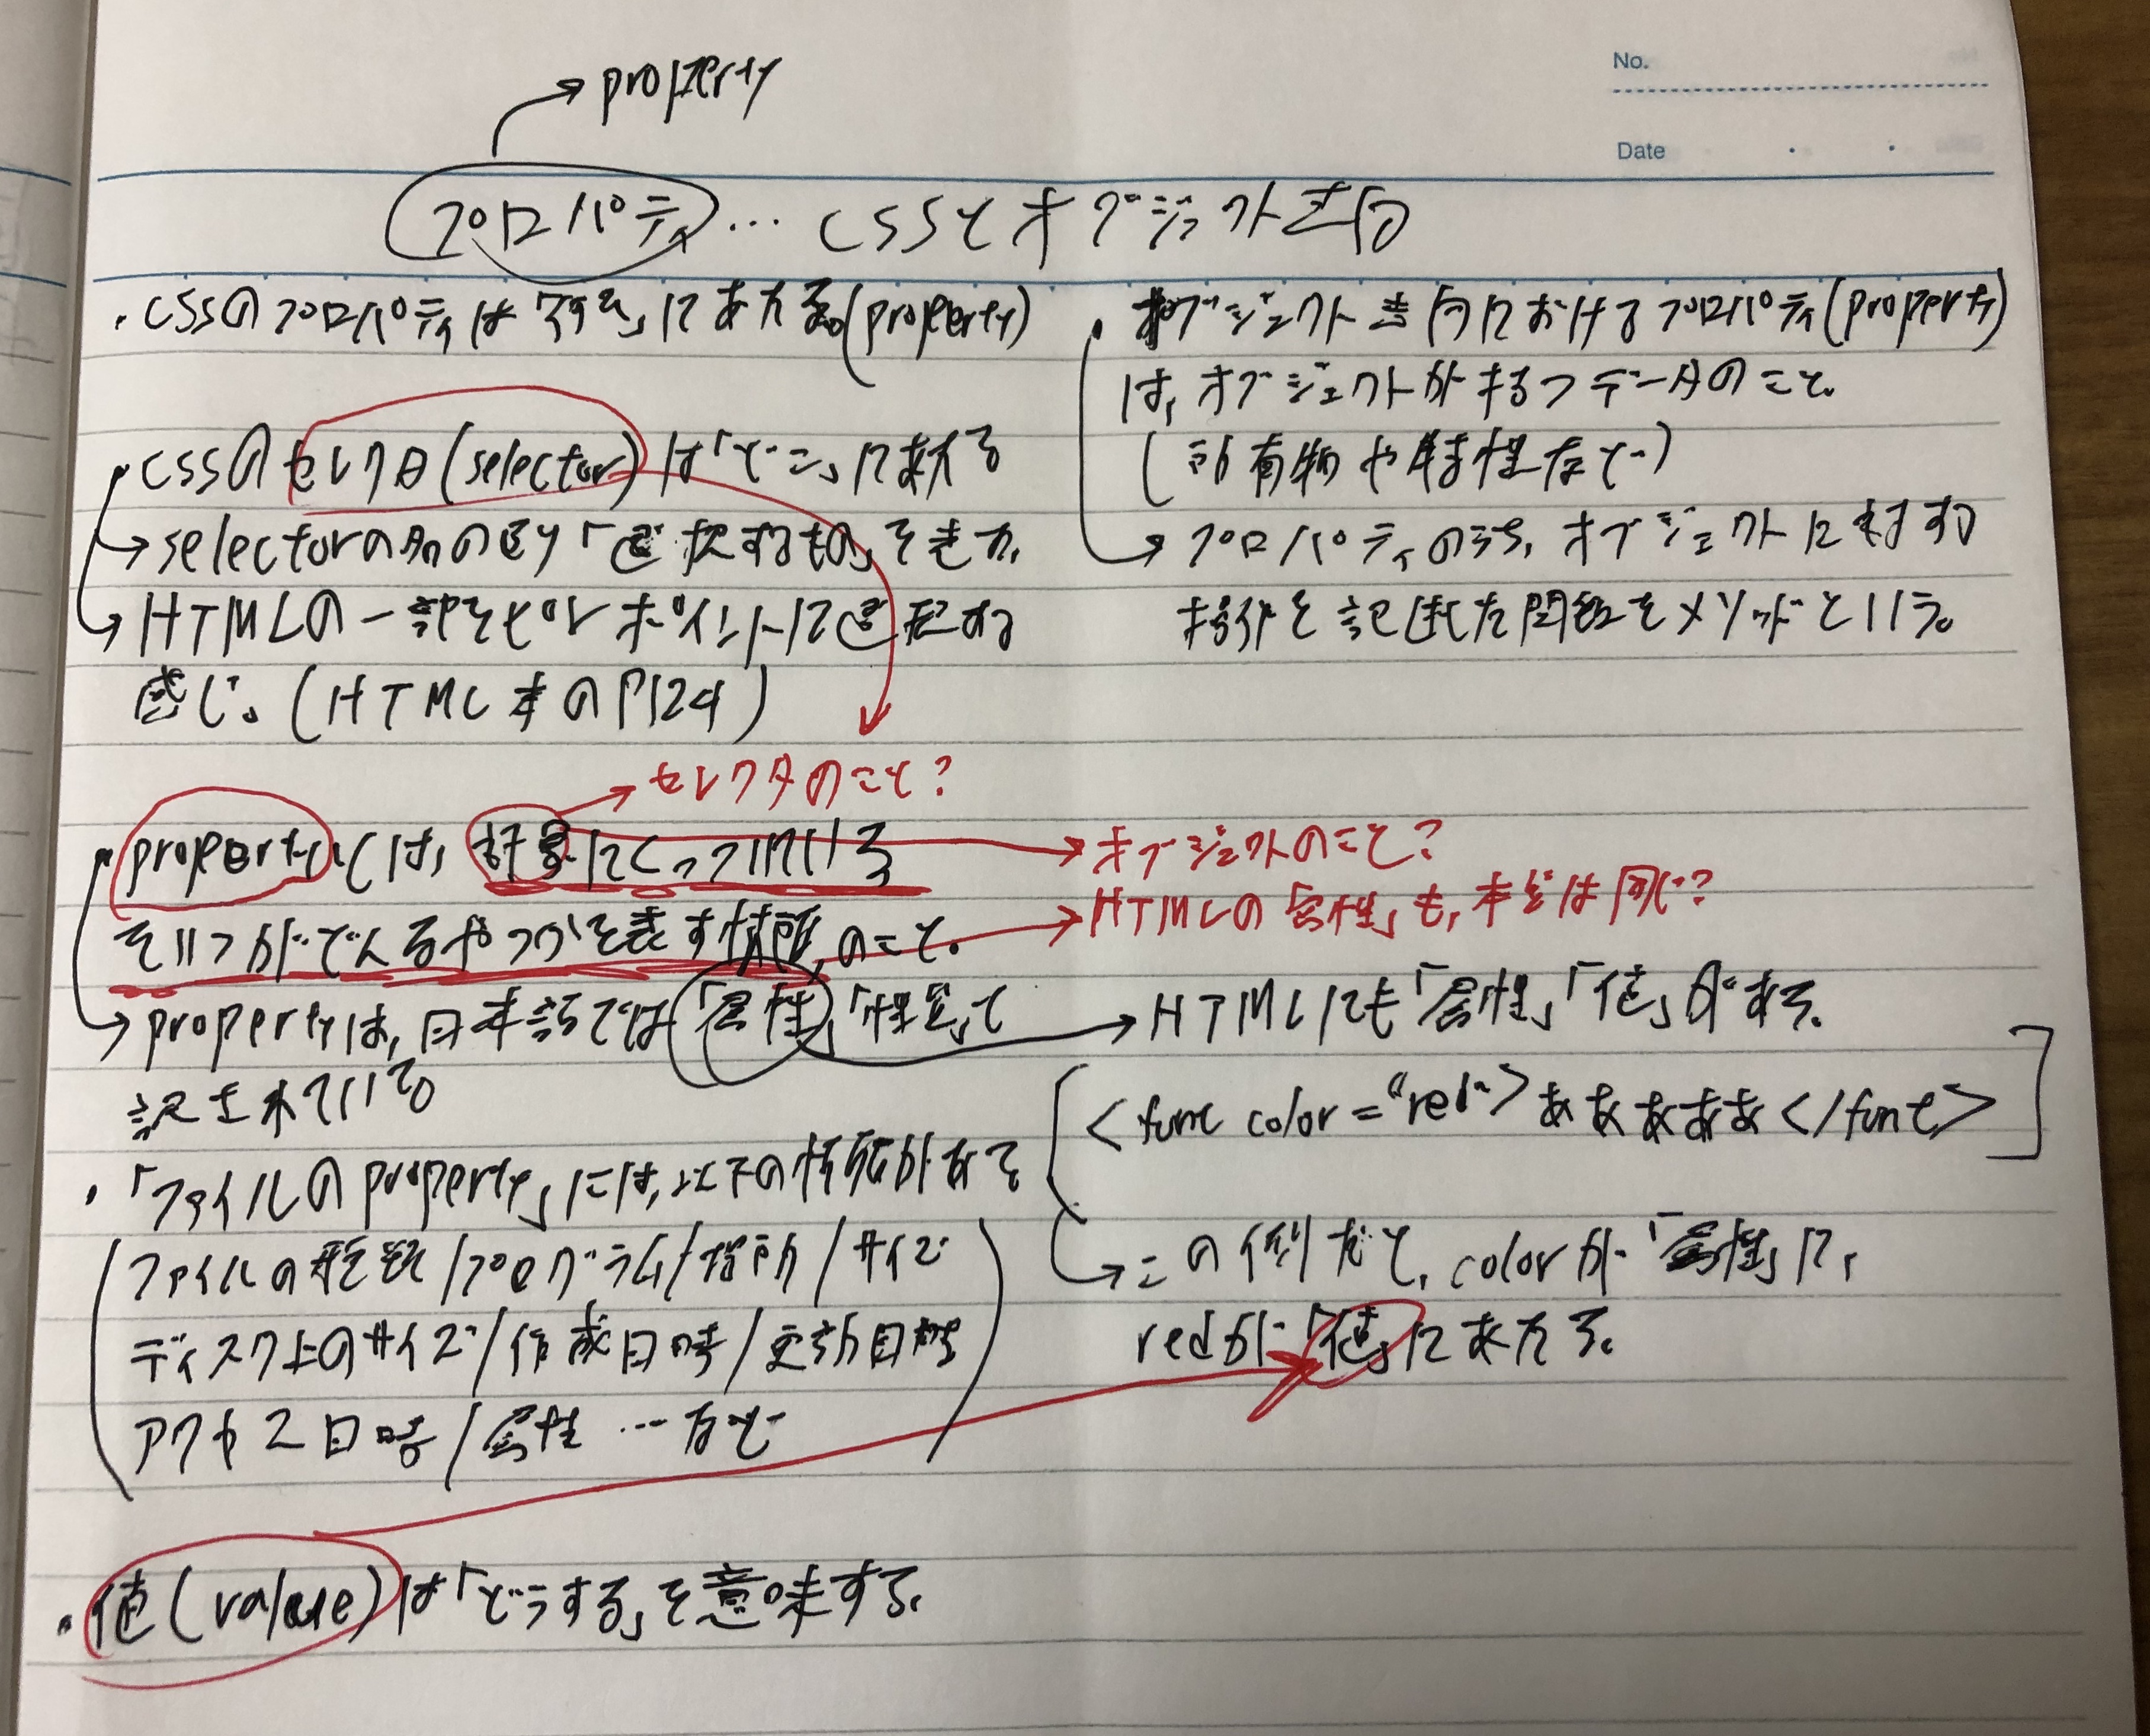 No.
Date
property
プロパティ… CSSとオブジェクト志向
・CSSのプロパティは「何を」にあたる。(property)
・CSSのセレクタ(selector)は「どこ」にあたる
→selectorの名の通り「選択するもの」を表す。
→HTMLの一部をセレポイントに選択する
感じ。(HTML本のP124)
・オブジェクト志向におけるプロパティ(property)
は、オブジェクトがもつデータのこと。
(所有物や特性など)
→プロパティのうち、オブジェクトに対する
操作を記述した関数をメソッドという。
→セレクタのこと?
・propertyとは、対象にくっついている
それがどんなやつかを表す情報、のこと。
→オブジェクトのこと?
→HTMLの「属性」も、本質は同じ?
→propertyは、日本語では「属性」「性質」と
訳されている
→HTMLにも「属性」「値」がある。
<font color="red">あああああ</font>
→この例だと、colorが「属性」に、
redが「値」にあたる。
・「ファイルのproperty」には、以下の情報がある
ファイルの種類/プログラム/場所/サイズ
ディスク上のサイズ/作成日時/更新日時
アクセス日時/属性…など
・値(value)は「どうする」を意味する。